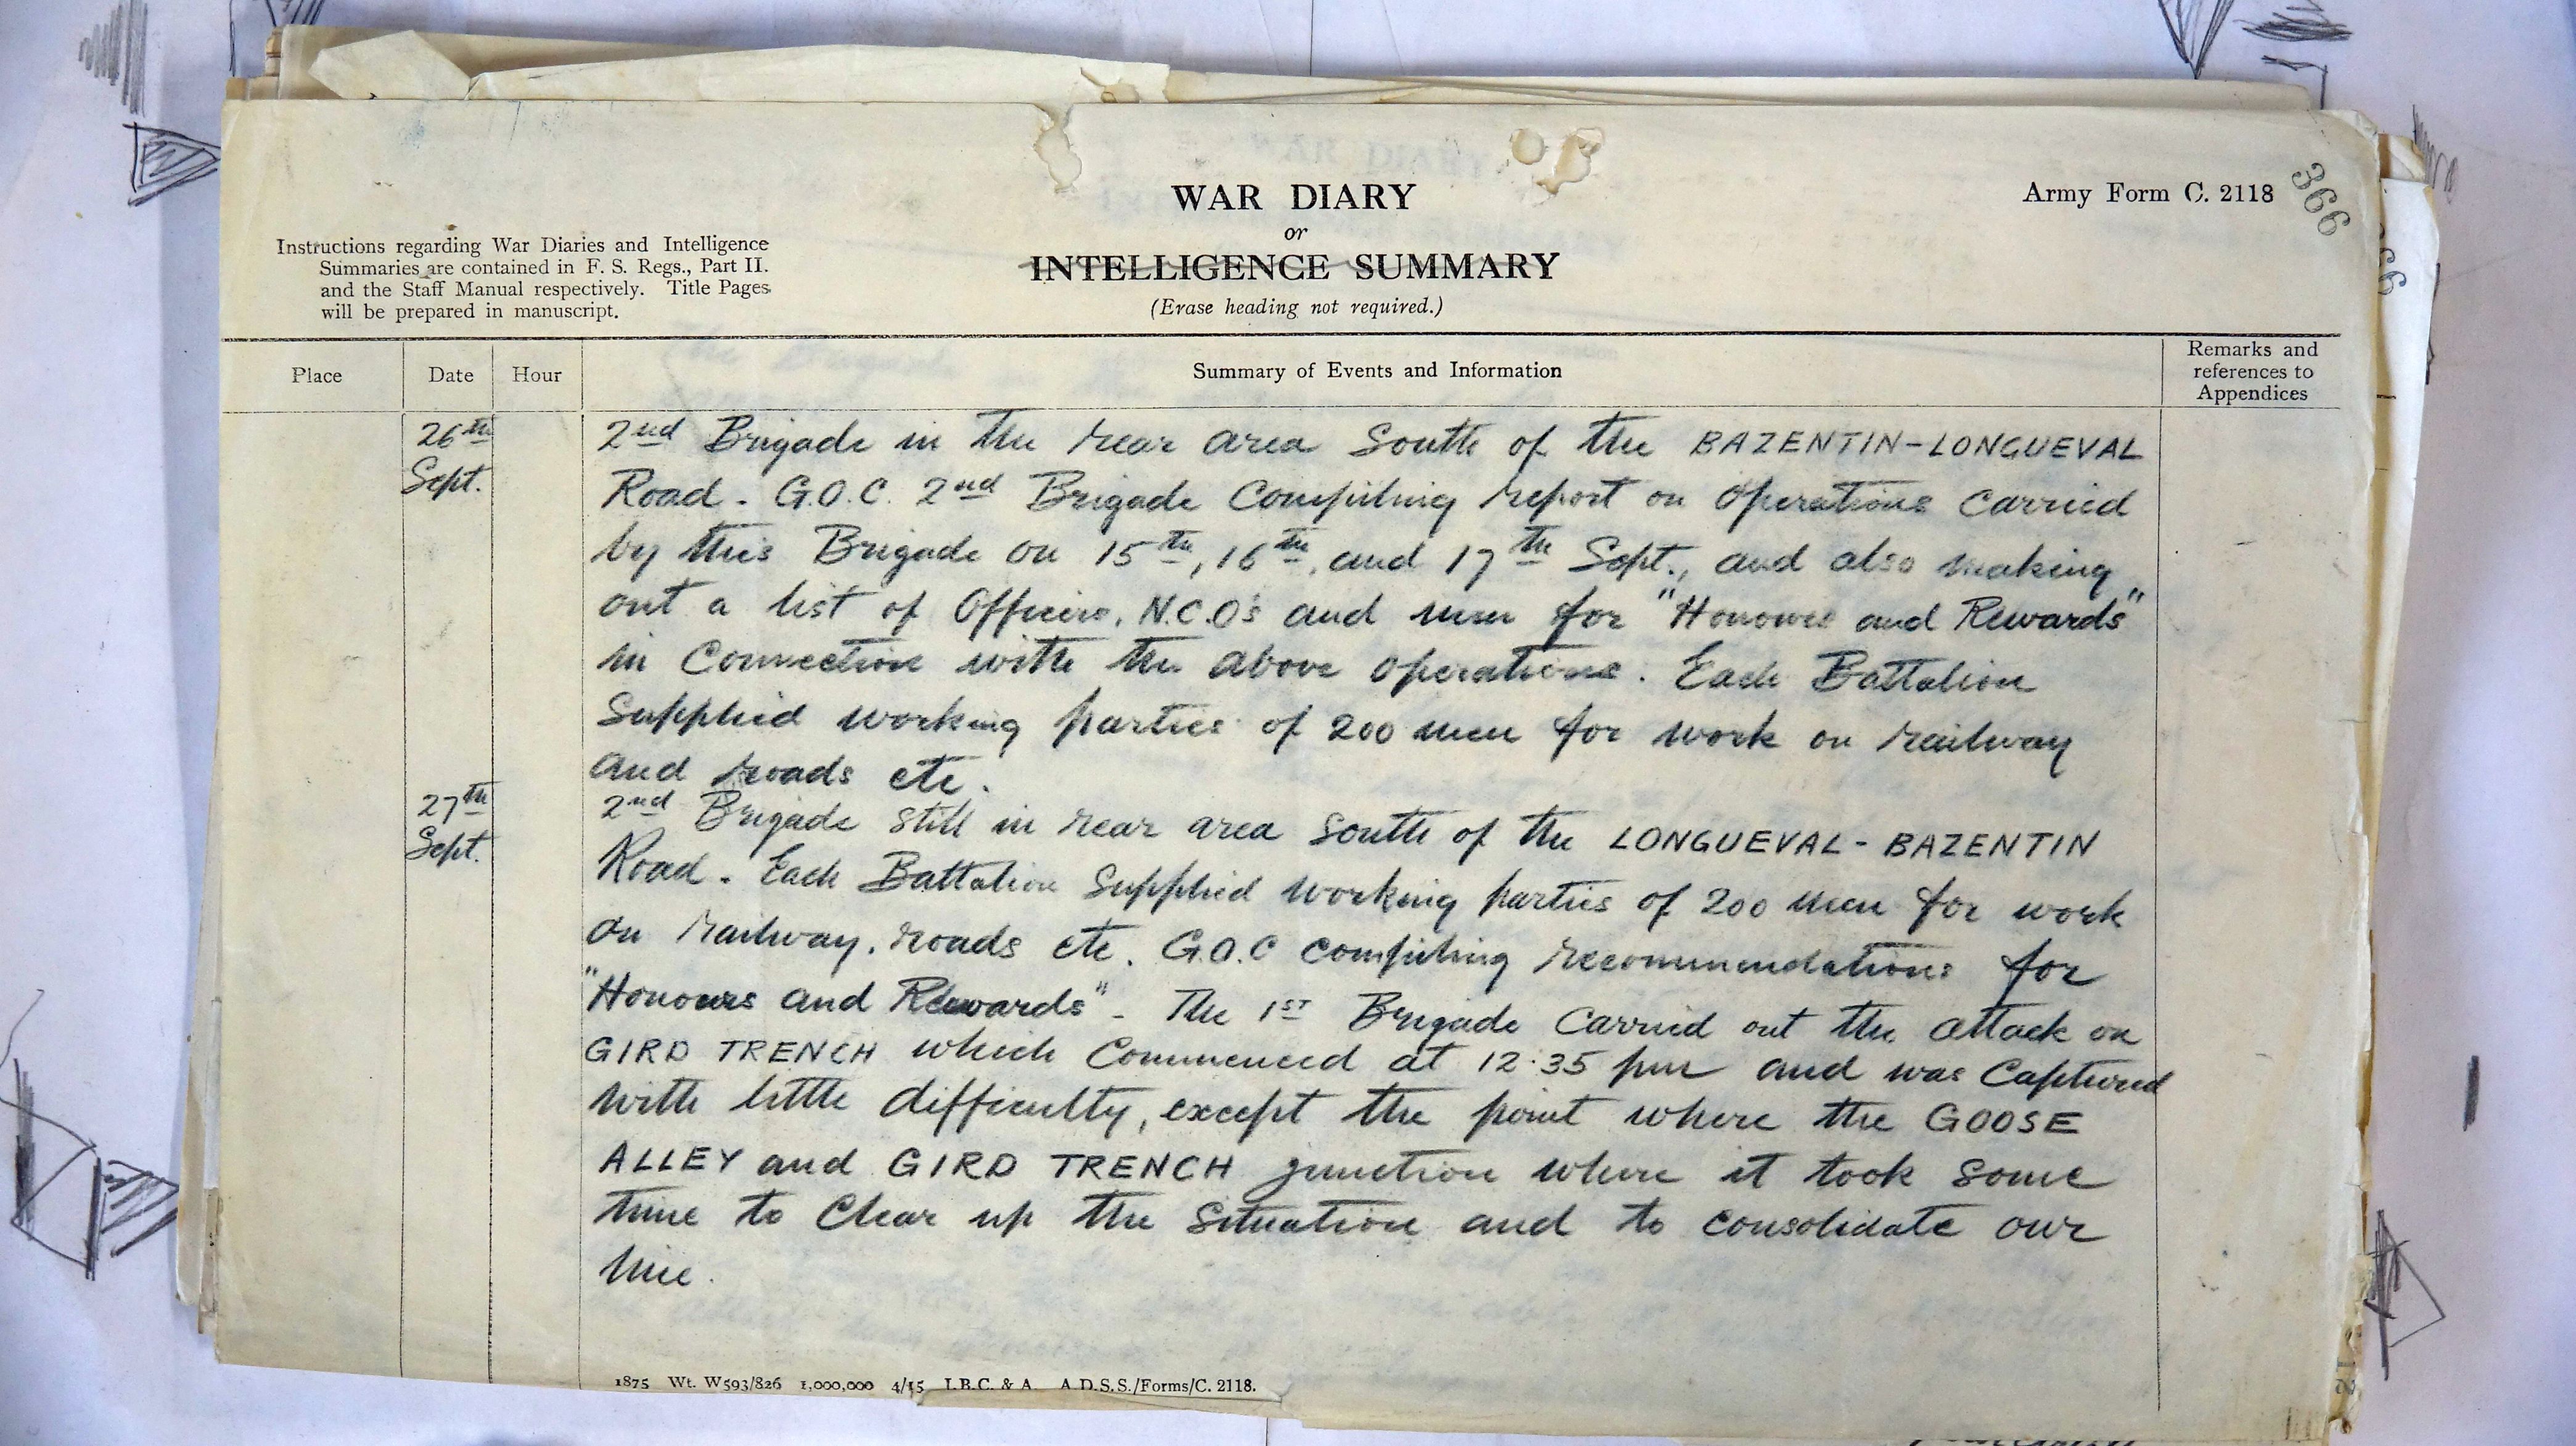 WAR DIARY
or
INTELLIGENCE SUMMARY
(Erase heading not required.)
Army Form C. 2118
366
Instructions regarding War Diaries and Intelligence
Summaries are contained in F. S. Regs., Part II.
and the Staff Manual respectively. Title Pages
will be prepared in manuscript.
Place Date Hour Summary of Events and Information Remarks and
references to
Appendices
26th
Sept.
2nd Brigade in the rear area South of the BAZENTIN-LONGUEVAL
Road. G.O.C. 2nd Brigade Compiling report on Operations Carried
by this Brigade on 15th, 16th, and 17th Sept., and also making
out a list of Officers, N.C.O's and men for "Honours and Rewards"
in Connection with the above Operations. Each Battalion
Supplied working parties of 200 men for work on railway
and roads etc.
27th
Sept.
2nd Brigade still in rear area South of the LONGUEVAL-BAZENTIN
Road. Each Battalion Supplied working parties of 200 men for work
on railway, roads etc. G.O.C compiling recommendations for
"Honours and Rewards" - The 1ST Brigade Carried out the attack on
GIRD TRENCH which Commenced at 12.35 pm and was Captured
with little difficulty, except the point where the GOOSE
ALLEY and GIRD TRENCH junction where it took some
time to Clear up the Situation and to consolidate our
line.
1875 Wt. W593/826 1,000,000 4/15 J.B.C. & A. A.D.S.S./Forms/C. 2118.